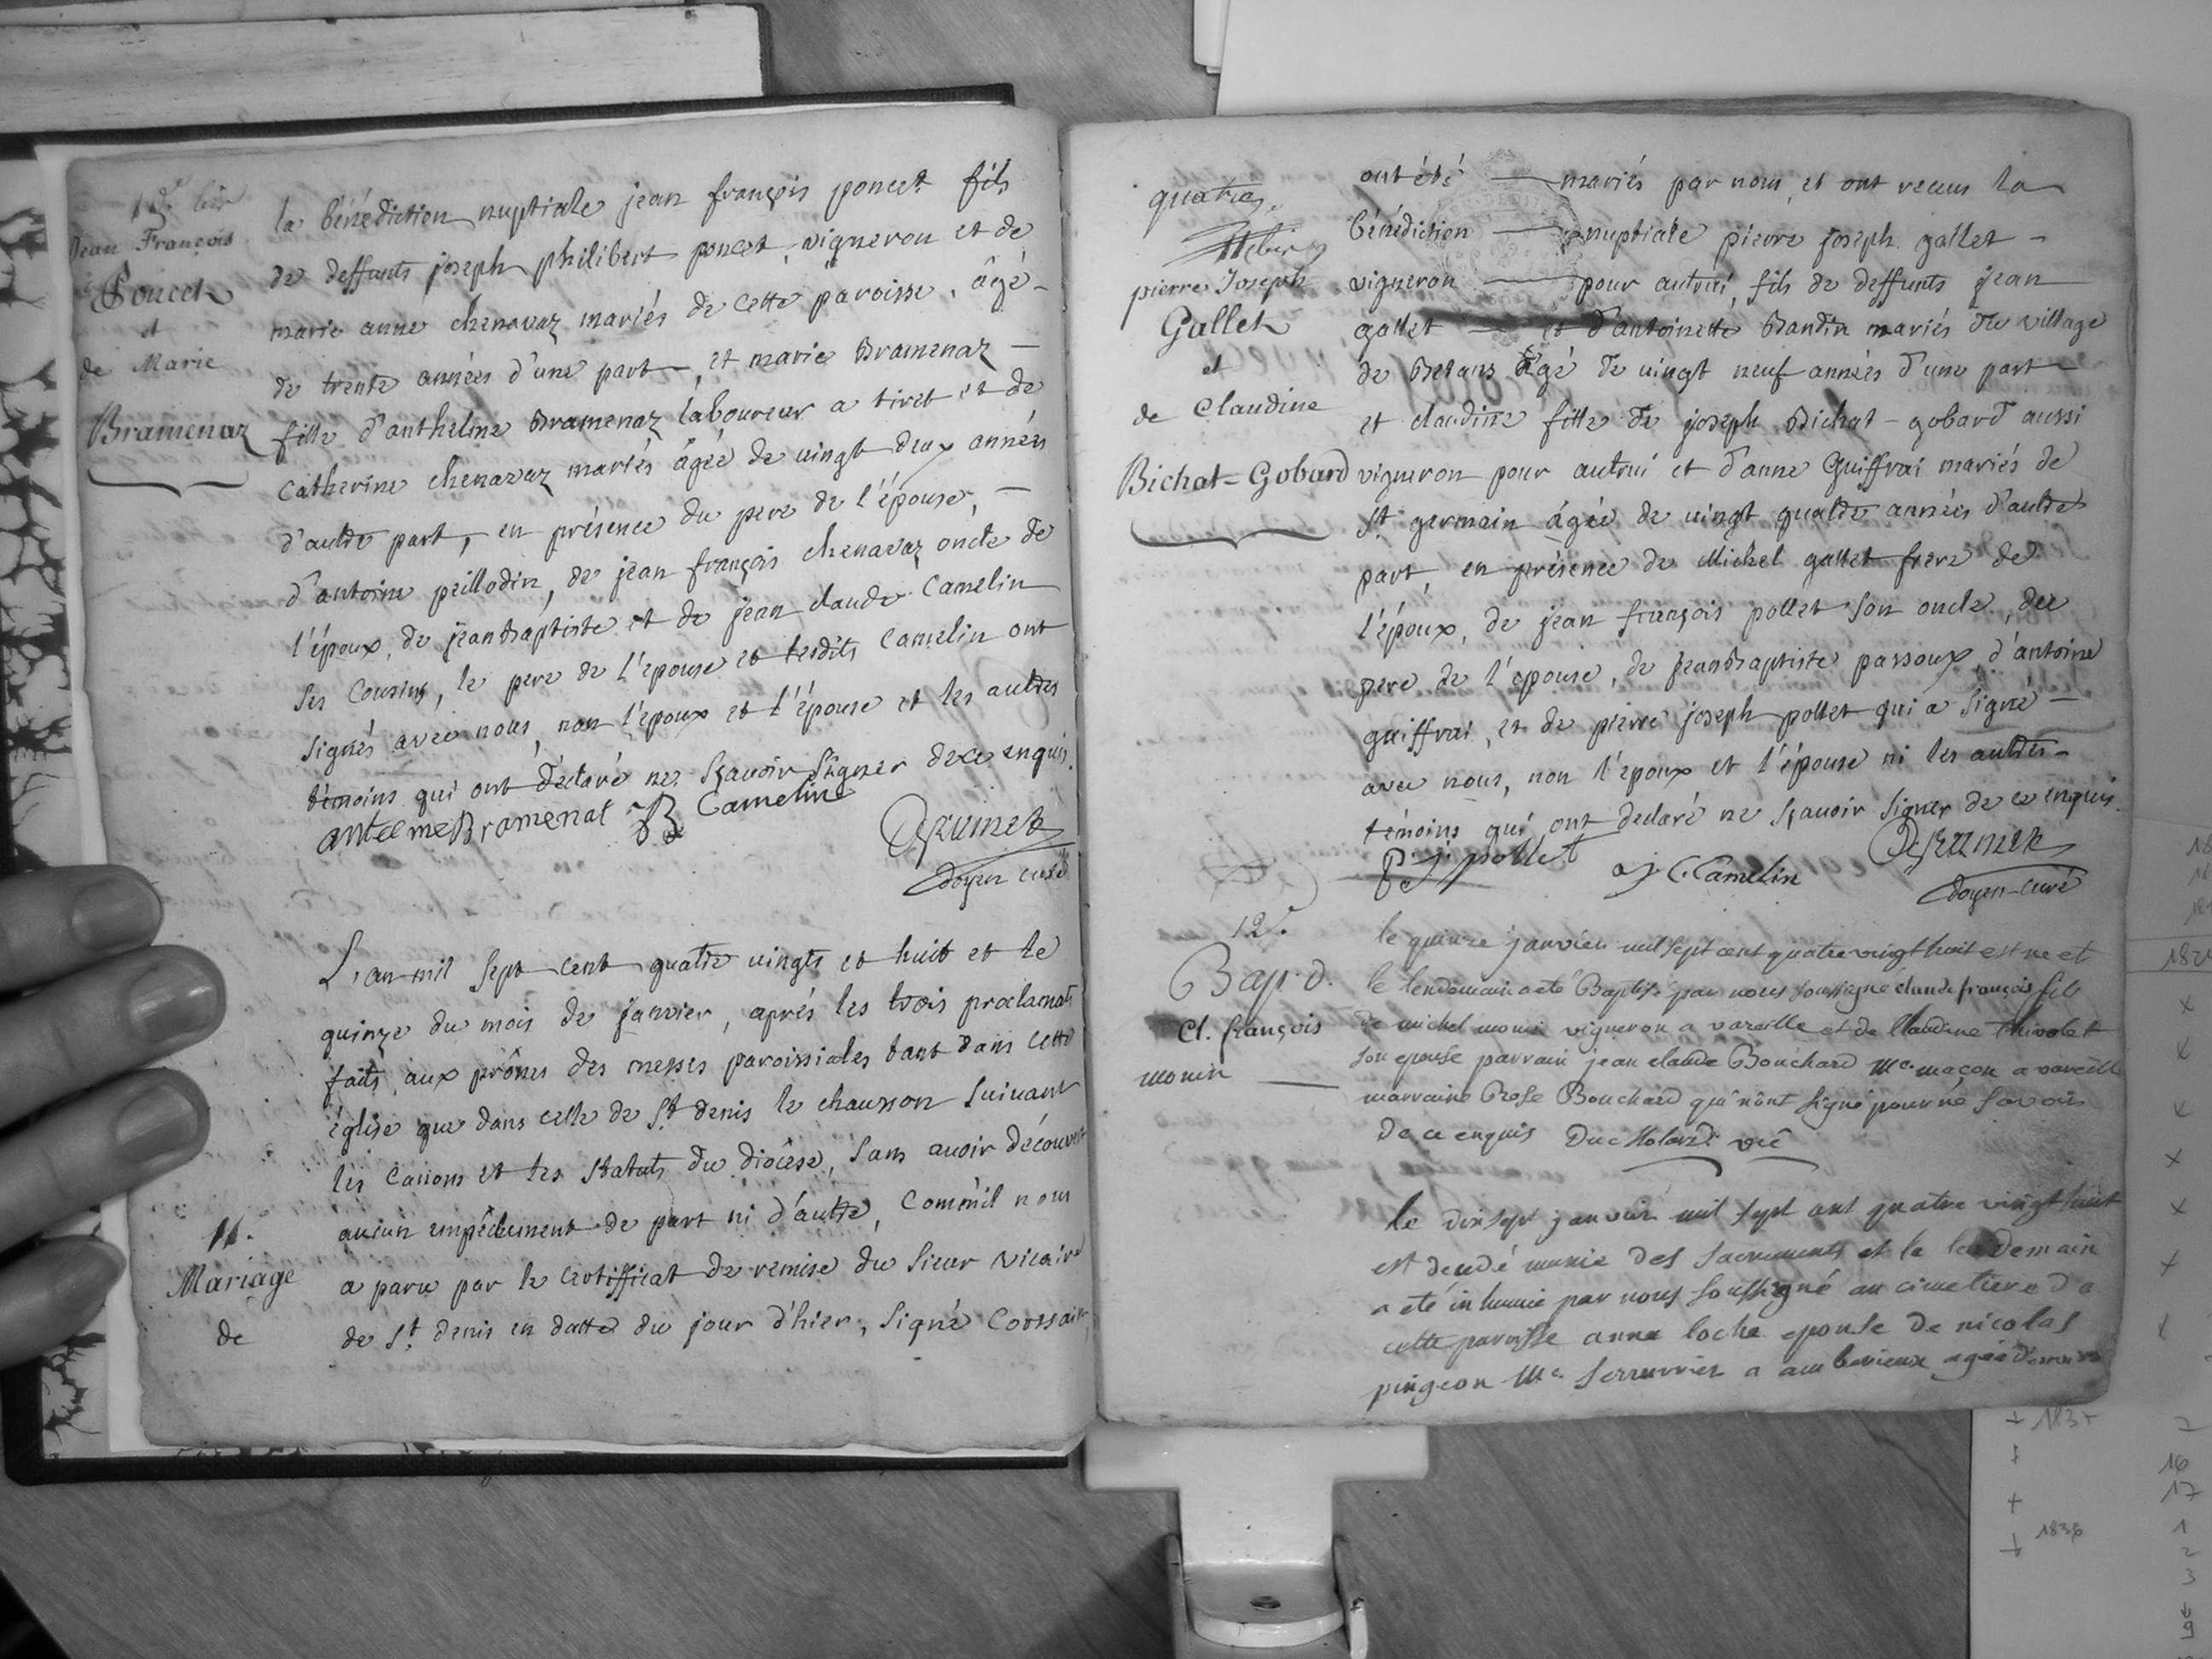 Jean François
Poncet
et
de Marie
Bramenaz
la bénédiction nuptiale jean françois poncet fils
de deffunts joseph philibert poncet, vigneron et de
marie anne chenavaz mariés de cette paroisse, âgé
de trente années d'une part, et marie Bramenaz
fille d'anthelme Bramenaz laboureur a tiret et de
catherine chenavaz mariés âgée de vingt deux années
d'autre part, en présence du pere de l'épouse,
d'antoine peillodin, de jean françois chenavaz oncle de
l'époux, de jean Baptiste et de jean claude Camelin
ses Cousins, le pere de l'epouse et lesdits Camelin ont
signés avec nous, non l'epoux et l'épouse et les autres
témoins qui ont déclaré ne sçavoir signer de ce enquis.
antelme Bramenat JB Camelin
doyen curé
L'an mil sept cent quatre vingts et huit et le
quinze du mois de janvier, aprés les trois proclamat
faits aux prônes des messes paroissiales tant dans cette
église que dans celle de St denis le chausson suivant
les Canons et les statuts du diocèse, sans avoir découvert
aucun empêchement de part ni d'autre, Comm'il nous
a paru par le certifficat de remise du sieur vicaire
de St denis en datte du jour d'hier, signé Cossair
11.
Mariage
de
quatre.
pierre Joseph
Gallet
et
de Claudine
Bichat=Gobard
ont été mariés par nous, et ont recus la
bénédiction nuptiale pierre joseph gallet -
vigneron pour autrui, fils de deffunts jean
gallet et d'antoinette Bandin mariés du village
de Betans âgé de vingt neuf années d'une part
et claudine fille de joseph Bichat-gobard aussi
vigneron pour autrui et d'anne Guiffrai mariés de
St germain âgée de vingt quatre années d'autre
part, en présence de Michel gallet frere de
l'époux, de jean françois pollet son oncle, du
pere de l'epouse, de jean Baptiste passoux, d'antoine
guiffrai, et de pierre joseph pollet qui a signé -
avec nous, non l'epoux et l'épouse ni les autres -
témoins qui ont declaré ne sçavoir signer de ce enquis.
P j pollet j C Camelin
doyen-curé
12.
Bap. d.
Cl. françois
monin
le quinze janvier mil sept cent quatre vingt huit est ne et
le lendemain a eté Baptisé par nous soussigné claude françois fils
de michel monin vigneron a vareille et de Claudine Thivolet
son epouse parrain jean claude Bouchard me. maçon a vareille
marraine Rose Bouchard qui n'ont signé pour ne savoir
de ce enquis Ducholard vic
le dixsept janvier mil sept cent quatre vingt huit
est decedé munie des sacrements et le lendemain
a eté inhumée par nous soussigné au cimetiere de
cette paroisse anne loche epouse de nicolas
pingeon me. serrurier a amberieux agée d'environ
1835
16
17
1836
1
2
3